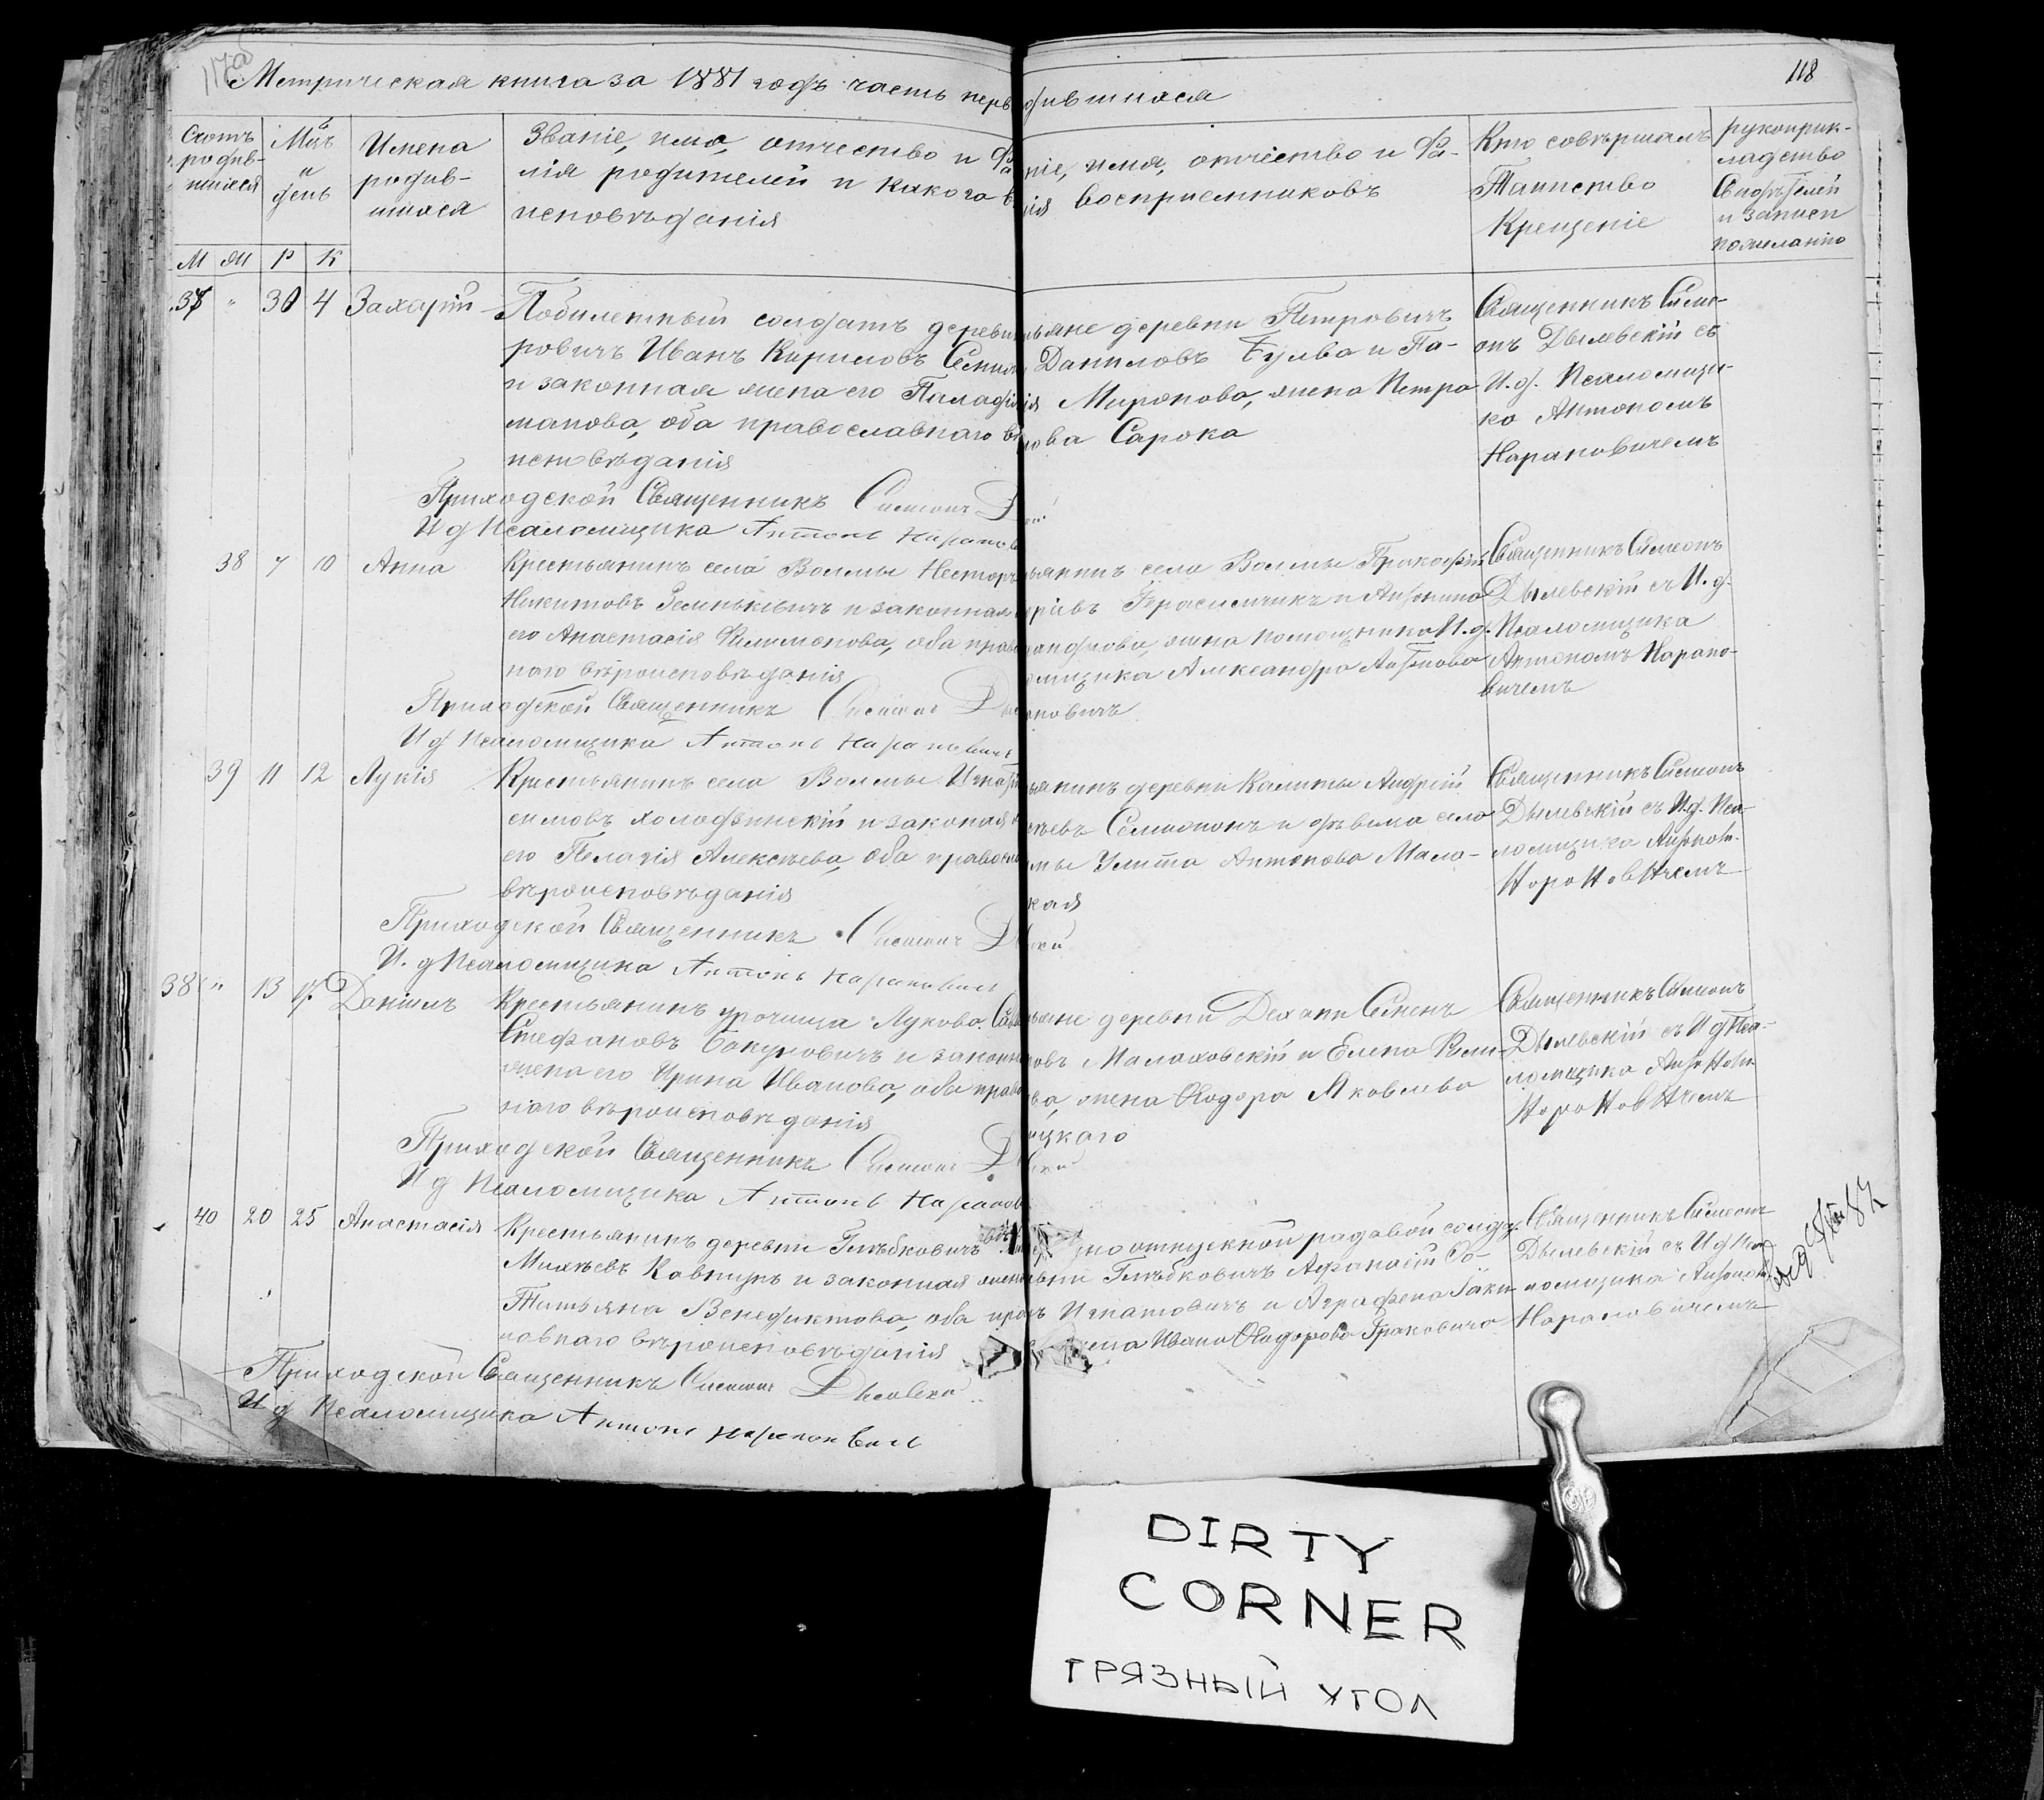 118
Метрическая книга за 1881 годъ часть перв
дившихся
Счетъ родив-шихся
Мцъ и день
Имена родив-шихся
Званіе, имя, отчество и Фа
лія родителей и какого в
исповѣданія
ніе, имя, отчество и Фа-
лія восприемниковъ
Кто совершалъ
Таинство
Крещеніе
рукоприк-
ладство
Свидѣтелей
и записи
пожеланію
М Ж Р К
37 " 30 4 Захарій
Побилетный солдатъ деревни
ровичъ Иванъ Кириловъ
и законная жена его
манова, оба православнаго в
исповѣданія
ьяне деревни Петровичъ
Даниловъ Булва и Па-
ія Миронова, жена Петра
нова Сарока
Священникъ Симе-
онъ Дылевскій съ
И. д. Псаломщи-
ка Антономъ
Нарановичемъ
Приходской Священникъ Симеонъ
И д Псаломщика Антонъ
38 7 10 Анна
Крестьянинъ села Волмы Несторъ
Никитовъ Зенькевичъ и законная
его Анастасія Филимонова, оба прав
наго вѣроисповѣданія
ьянинъ села Волмы Прокофій
Герасимчикъ и Антонина
жена помощника И. д.
омщика Александра Антонова
новичъ
Священникъ Симеонъ
Дылевскій съ И. д.
Псаломщика
Антономъ Нарано-
вичемъ
Приходской Священникъ Симеонъ
И д Псаломщика Антонъ Нарановичъ
39 11 12 Лукія
Крестьянинъ села Волмы
симовъ Холодинскій и законая
его Пелагія Алексѣева, оба правосл
вѣроисповѣданія
ьянинъ деревни Калиты Андрей
сѣевъ Селивонъ и дѣвица села
мы Улита Антонова Мала-
кая
Священникъ Симеонъ
Дылевскій съ И.д. Пса-
ломщика Антоном.
Нарановичемъ
Приходской Священникъ Симеонъ
И. д Псаломщика Антонъ Нарановичъ
38 " 13 17 Даніилъ
Крестьянинъ урочища Луково
Стефановъ Бакуновичъ и законн
жена его Ирина Иванова, оба право
наго вѣроисповѣданія
ьяне деревни Семенъ
овъ Малаховскій и Елена
ва, жена Ѳеодора Яковлева
ицкаго
Священникъ Симеонъ
Дылевскій съ И д Пса-
ломщика Антоном
Нарановичемъ
Приходской Священникъ Симеонъ
И д Псаломщика Антонъ
40 20 25 Анастасія
Крестьянинъ деревни Глѣбковичъ
Михѣевъ Кавпунъ и законная жена
Татьяна Венедиктова, оба прав
новнаго вѣроисповѣданія
но отпускной радавой солда
вни Глѣбковичъ Афанасій Со-
Игнатовичъ и Аграфена
жена Ивана Ѳеодорова Граковича
Священникъ Симеонъ
Дылевскій съ И д Пса
ломщика Антоном
Нарановичемъ
Приходской Священникъ Симеонъ Дылевскій
И д Псаломщика Антонъ Нарановичъ
DIRTY
CORNER
ГРЯЗНЫЙ УГОЛ